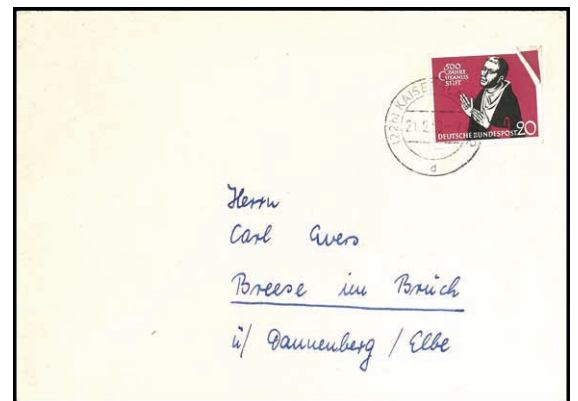 500
JAHRE
CUSANUS
STIFT
DEUTSCHE BUNDESPOST 20
21.2.5
Herrn
Carl Evers
Breese im Bruch
ü/ Dannenberg / Elbe